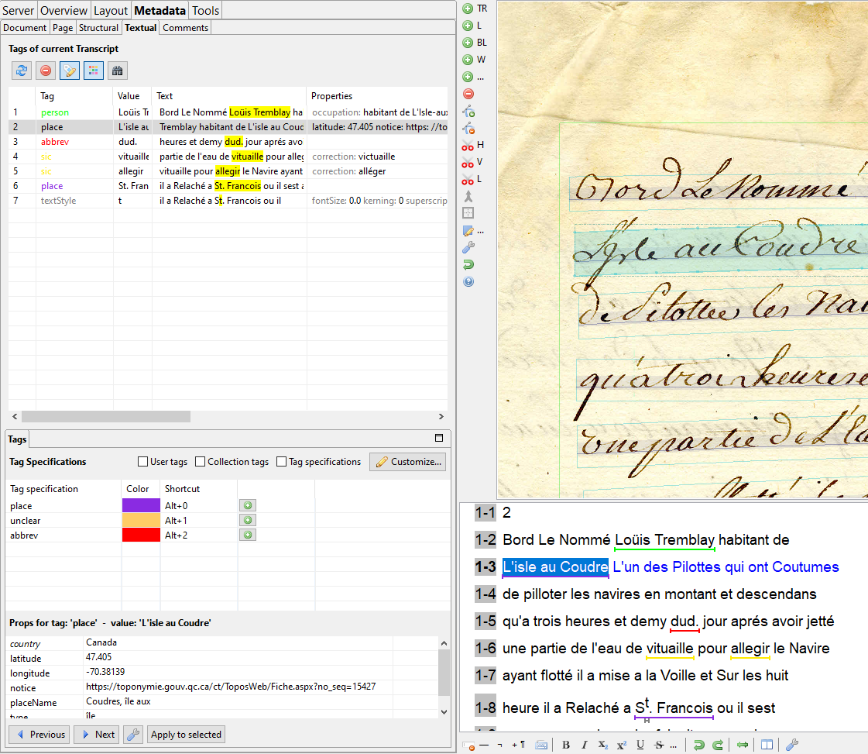 Server Overview Layout Metadata Tools
Document Page Structural Textual Comments
Tags of current Transcript
Tag Value Text Properties
1 person Loüis Tr Bord Le Nommé Loüis Tremblay ha occupation: habitant de L'Isle-aux
2 place L'isle au Tremblay habitant de L'isle au Couc latitude: 47.405 notice: https://to
3 abbrev dud. heures et demy dud. jour aprés avo
4 sic vituaille partie de l'eau de vituaille pour alleg correction: victuaille
5 sic allegir vituaille pour allegir le Navire ayant correction: alléger
6 place St. Fran il a Relaché a St. Francois ou il sest a
7 textStyle t il a Relaché a St. Francois ou il fontSize: 0.0 kerning: 0 superscrip
Tags
Tag Specifications User tags Collection tags Tag specifications Customize...
Tag specification Color Shortcut
place Alt+0
unclear Alt+1
abbrev Alt+2
Props for tag: 'place' - value: 'L'isle au Coudre'
country Canada
latitude 47.405
longitude -70.38139
notice https://toponymie.gouv.qc.ca/ct/ToposWeb/Fiche.aspx?no_seq=15427
placeName Coudres, île aux
type île
Previous Next Apply to selected
TR
L
BL
W
...
H
V
L
...
Bord Le Nommé
L'isle au Coudre
de Pilottee les Nav
qu'a trois heures e
une partie de L'Ea
1-1 2
1-2 Bord Le Nommé Loüis Tremblay habitant de
1-3 L'isle au Coudre L'un des Pilottes qui ont Coutumes
1-4 de pilloter les navires en montant et descendans
1-5 qu'a trois heures et demy dud. jour aprés avoir jetté
1-6 une partie de l'eau de vituaille pour allegir le Navire
1-7 ayant flotté il a mise a la Voille et Sur les huit
1-8 heure il a Relaché a St. Francois ou il sest
B I X₂ X² U S ...